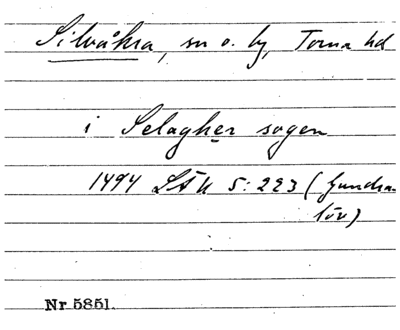 Silvåkra, sn o. by, Torna hd
i Selagher sogen
1494 LÄU 5:223 (Gundra-
löv)
Nr 5851.